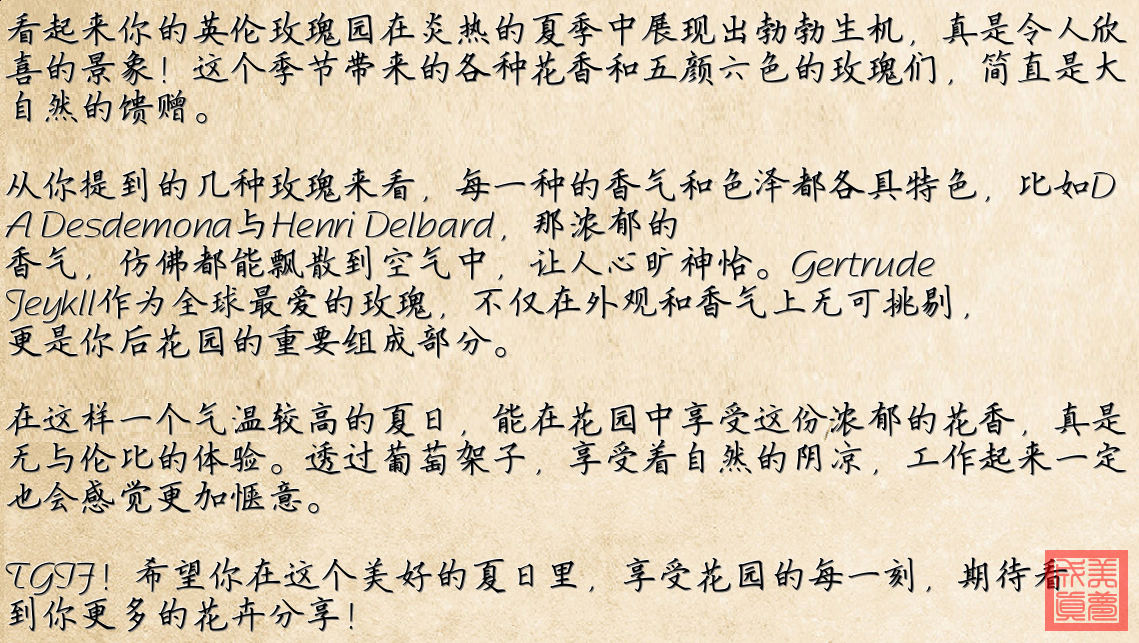 看起来你的英伦玫瑰园在炎热的夏季中展现出勃勃生机，真是令人欣
喜的景象！这个季节带来的各种花香和五颜六色的玫瑰们，简直是大
自然的馈赠。
从你提到的几种玫瑰来看，每一种的香气和色泽都各具特色，比如D
A Desdemona与Henri Delbard，那浓郁的
香气，仿佛都能飘散到空气中，让人心旷神怡。Gertrude
Jeykll作为全球最爱的玫瑰，不仅在外观和香气上无可挑剔，
更是你后花园的重要组成部分。
在这样一个气温较高的夏日，能在花园中享受这份浓郁的花香，真是
无与伦比的体验。透过葡萄架子，享受着自然的阴凉，工作起来一定
也会感觉更加惬意。
TGIF！希望你在这个美好的夏日里，享受花园的每一刻，期待看
到你更多的花卉分享！
美梦成真